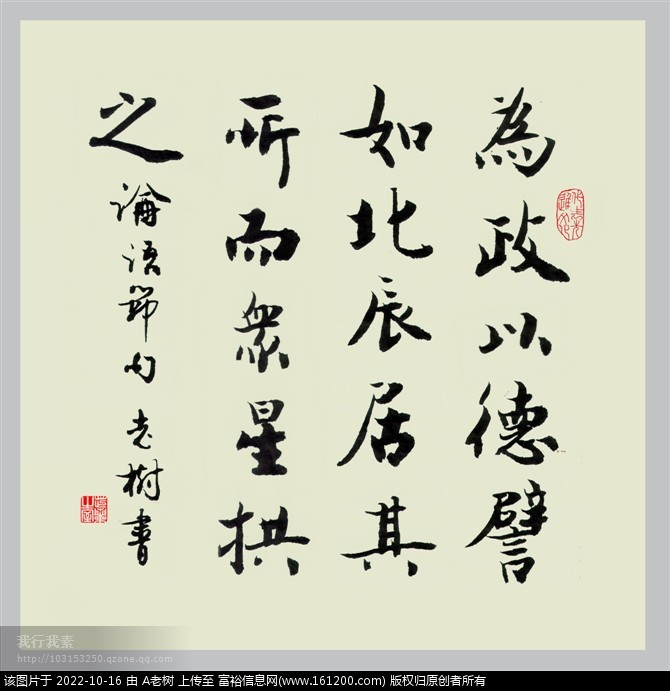 為政以德譬
如北辰居其
所而衆星拱
之
論語節句 老樹書
我行我素
http://103153250.qzone.qq.com
该图片于 2022-10-16 由 A老树 上传至 富裕信息网(www.161200.com) 版权归原创者所有